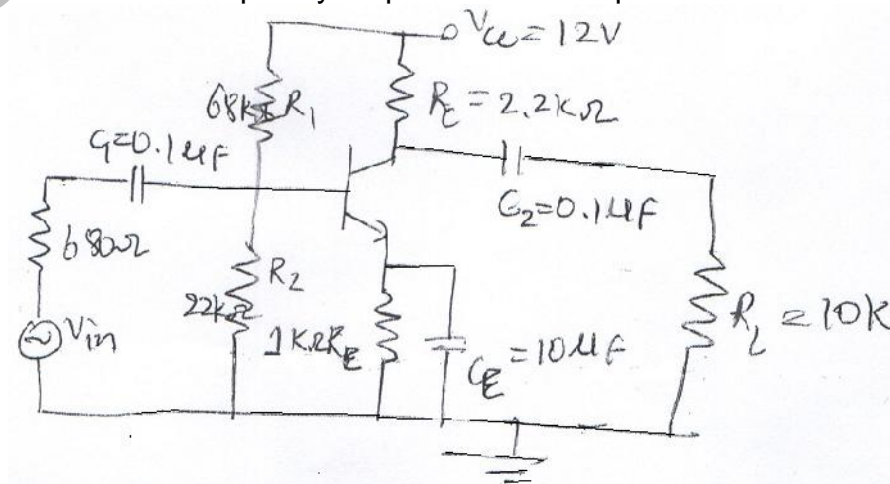 Vcc = 12V
68kΩ R1
RC = 2.2kΩ
C1=0.1μF
C2=0.1μF
680Ω
R2
22kΩ
Vin
1KΩ RE
CE = 10μF
RL = 10K